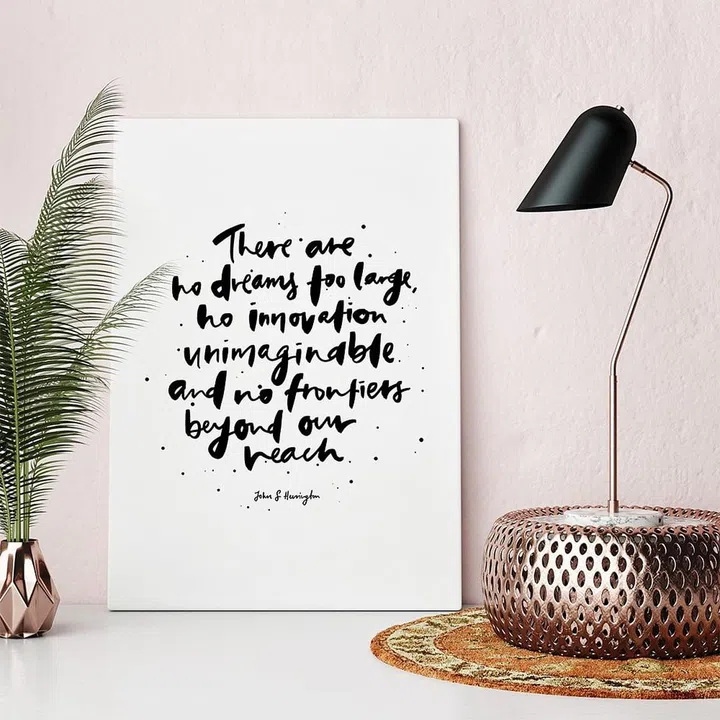 There are
no dreams too large,
no innovation
unimaginable
and no frontiers
beyond our
reach
John S Herrington